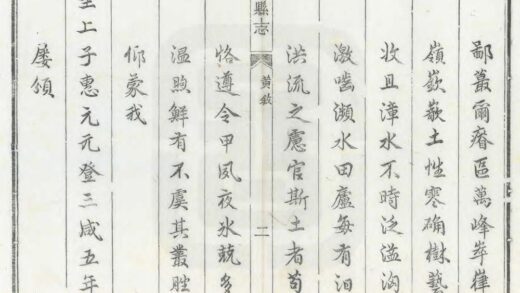 鄙蕞爾瘠區萬峰崒嵂
嶺嶔土性寒确樹藝
收且漳水不時泛溢洶
激嚙瀕水田廬每有汩
洪流之慮官斯土者苟
縣志 黃敘 二
恪遵令甲夙夜氷兢多
溫煦鮮有不虞其叢脞
仰蒙我
上子惠元元登三咸五年
屢頒